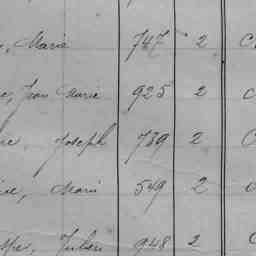 , Marie 747 2
, Jean Marie 925 2
Joseph 739 2
, Marie 549 2
, Julien 948 2